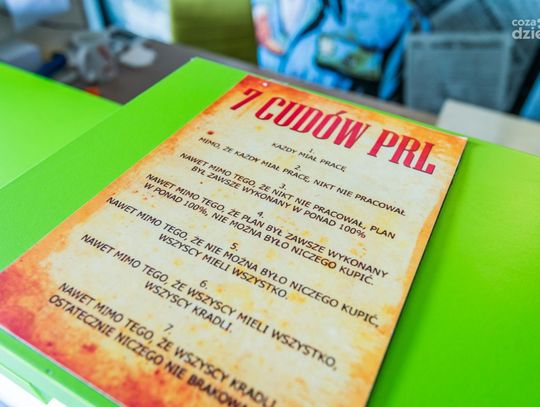 coza
dzie
7 CUDÓW PRL
1.
KAŻDY MIAŁ PRACĘ
2.
MIMO, ŻE KAŻDY MIAŁ PRACĘ, NIKT NIE PRACOWAŁ
3.
NAWET MIMO TEGO, ŻE NIKT NIE PRACOWAŁ, PLAN
BYŁ ZAWSZE WYKONANY W PONAD 100%
4.
NAWET MIMO TEGO, ŻE PLAN BYŁ ZAWSZE WYKONANY
W PONAD 100%, NIE MOŻNA BYŁO NICZEGO KUPIĆ.
5.
NAWET MIMO TEGO, ŻE NIE MOŻNA BYŁO NICZEGO KUPIĆ,
WSZYSCY MIELI WSZYSTKO.
6.
NAWET MIMO TEGO, ŻE WSZYSCY MIELI WSZYSTKO,
WSZYSCY KRADLI.
7.
NAWET MIMO TEGO, ŻE WSZYSCY KRADLI,
OSTATECZNIE NICZEGO NIE BRAKOWA